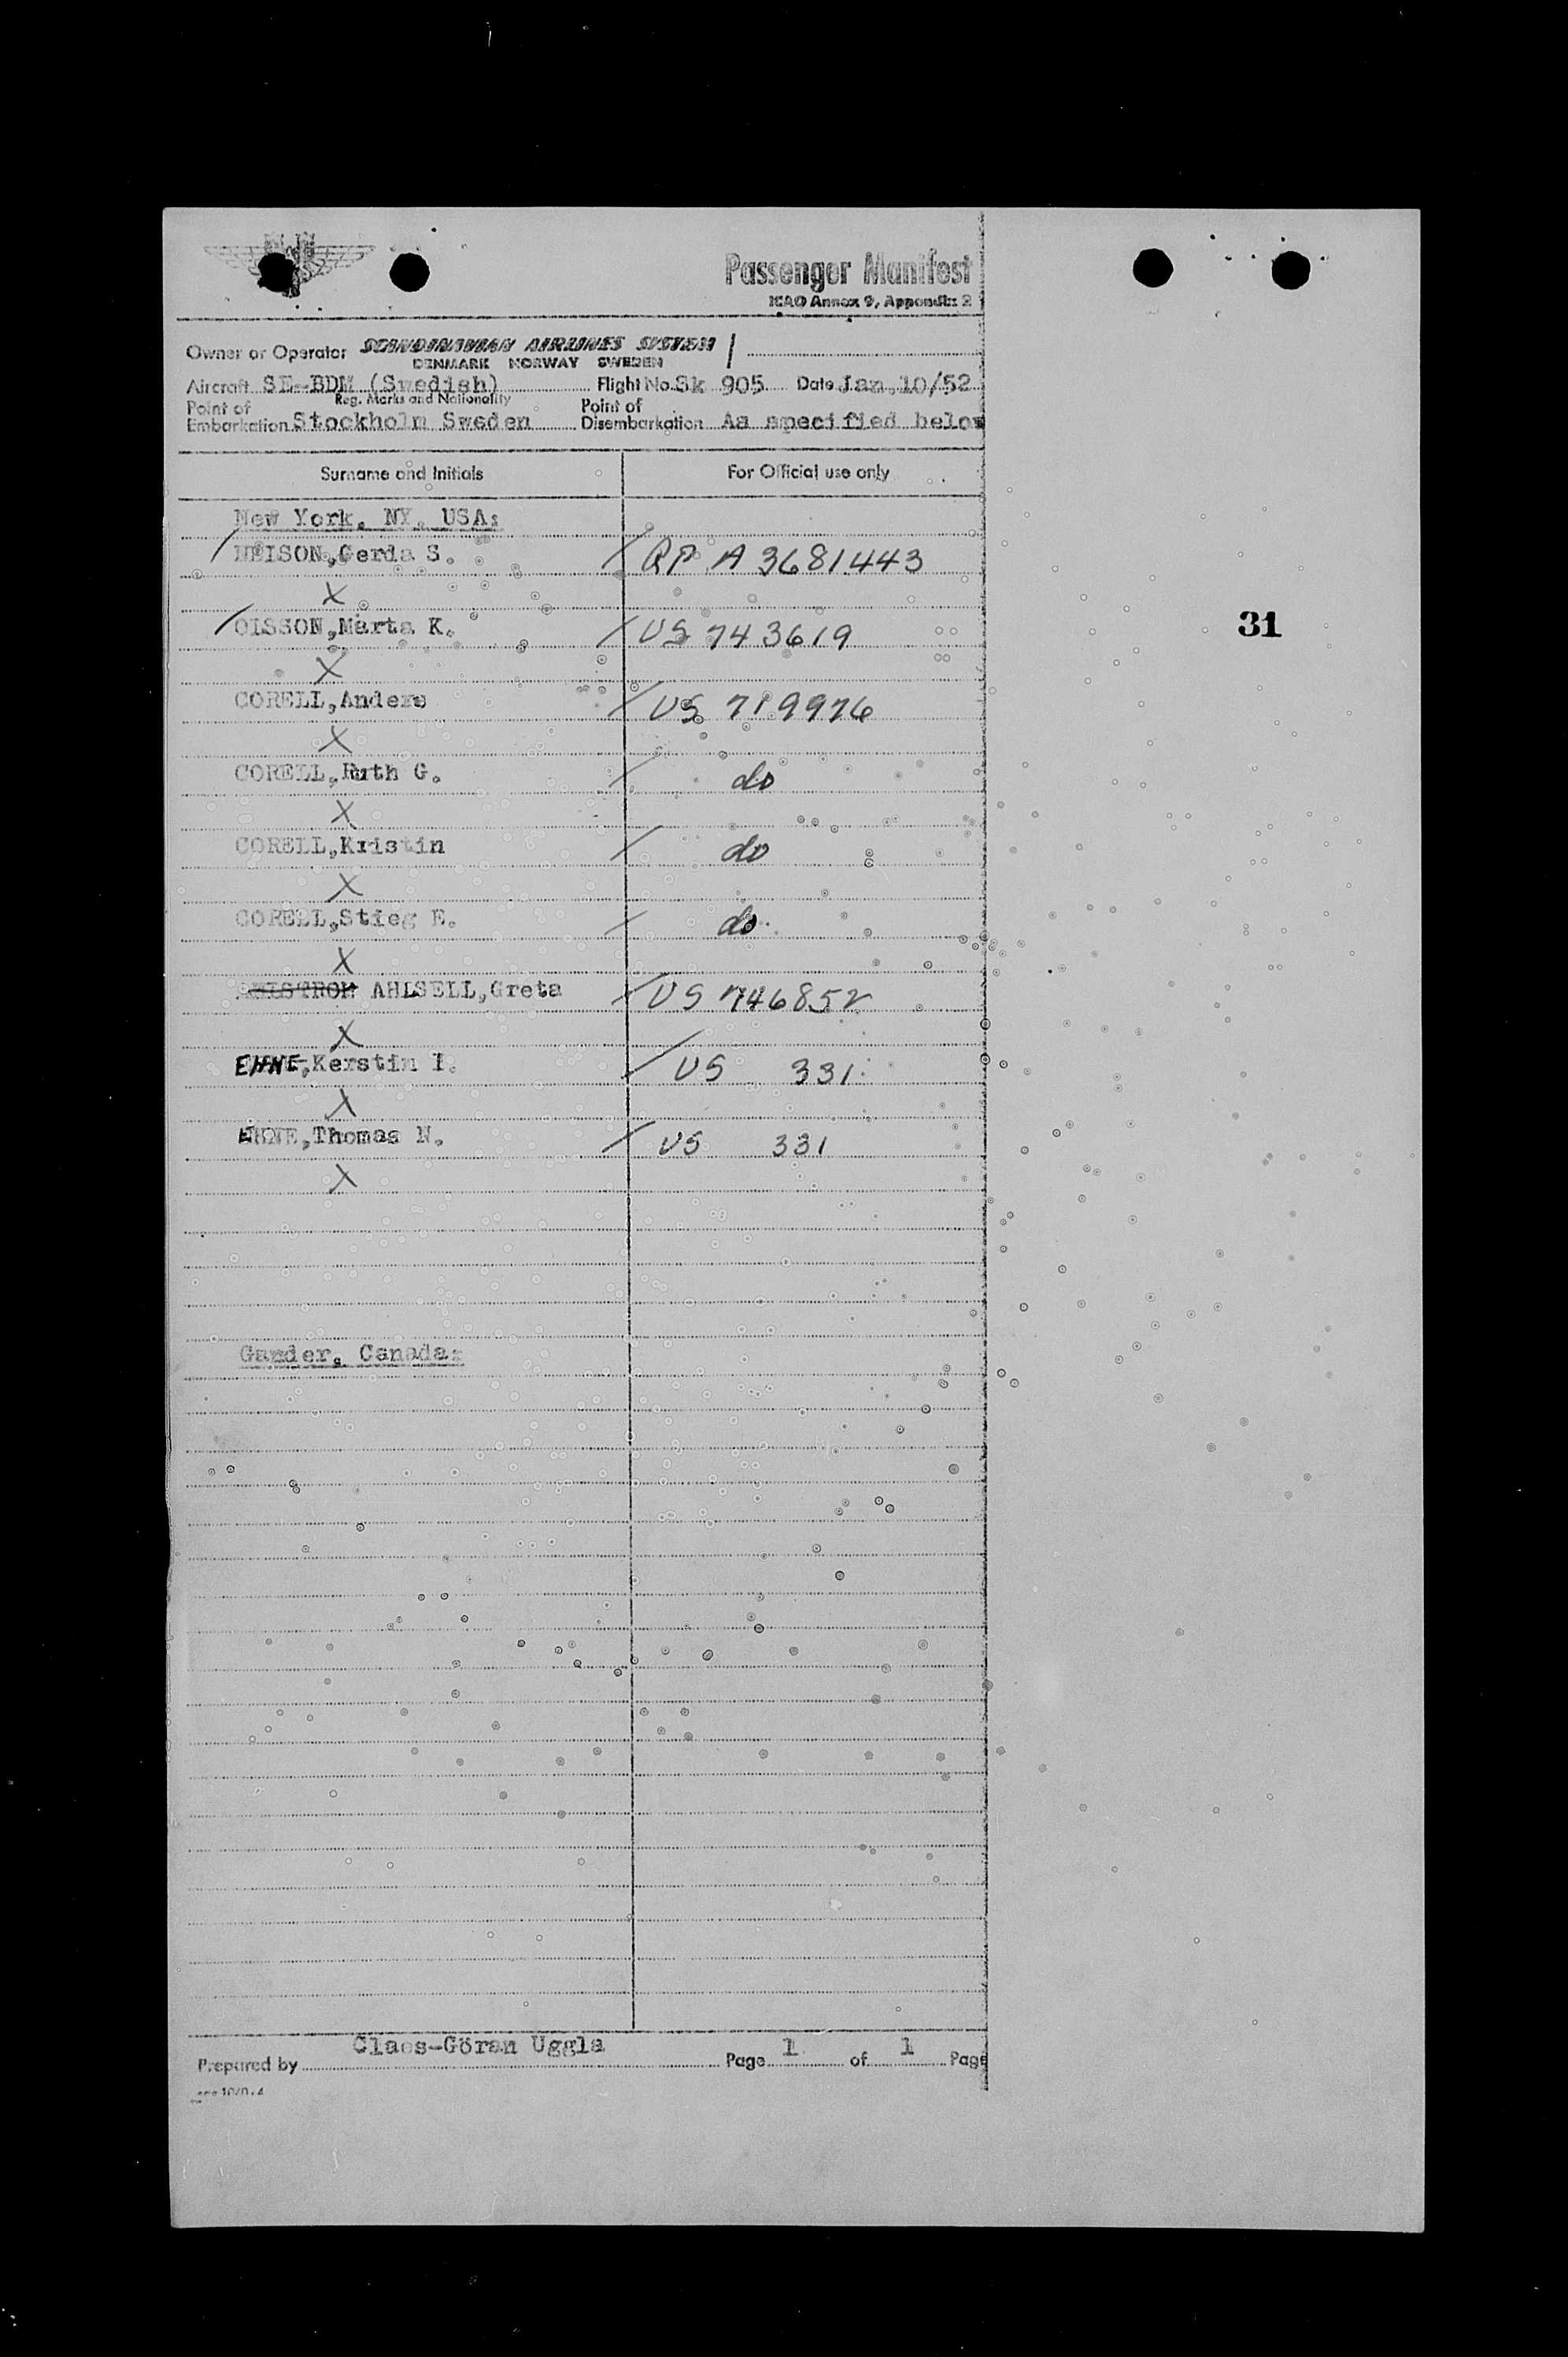 Passenger Manifest
ICAO Annex 9, Appendix 2
Owner or Operator SCANDINAVIAN AIRLINES SYSTEM
DENMARK NORWAY SWEDEN
Aircraft SE-BDM (Swedish) Flight No. Sk 905 Date Jan. 10/52
Reg. Marks and Nationality
Point of Embarkation Stockholm Sweden Point of Disembarkation As specified below
Surname and Initials For Official use only
New York, NY, USA:
NEISON, Gerda S. / RP A 3681443
X
OISSON, Marta K. / US 743619
X
31
CORELL, Anders / US 719976
X
CORELL, Ruth G. / do
X
CORELL, Kristin / do
X
CORELL, Stieg E. / do
X
AHLSELL, Greta / US 746852
X
EHNE, Kerstin I. / US 331
X
EHNE, Thomas N. / US 331
X
Gander, Canada:
Prepared by Claes-Göran Uggla Page 1 of 1 Page